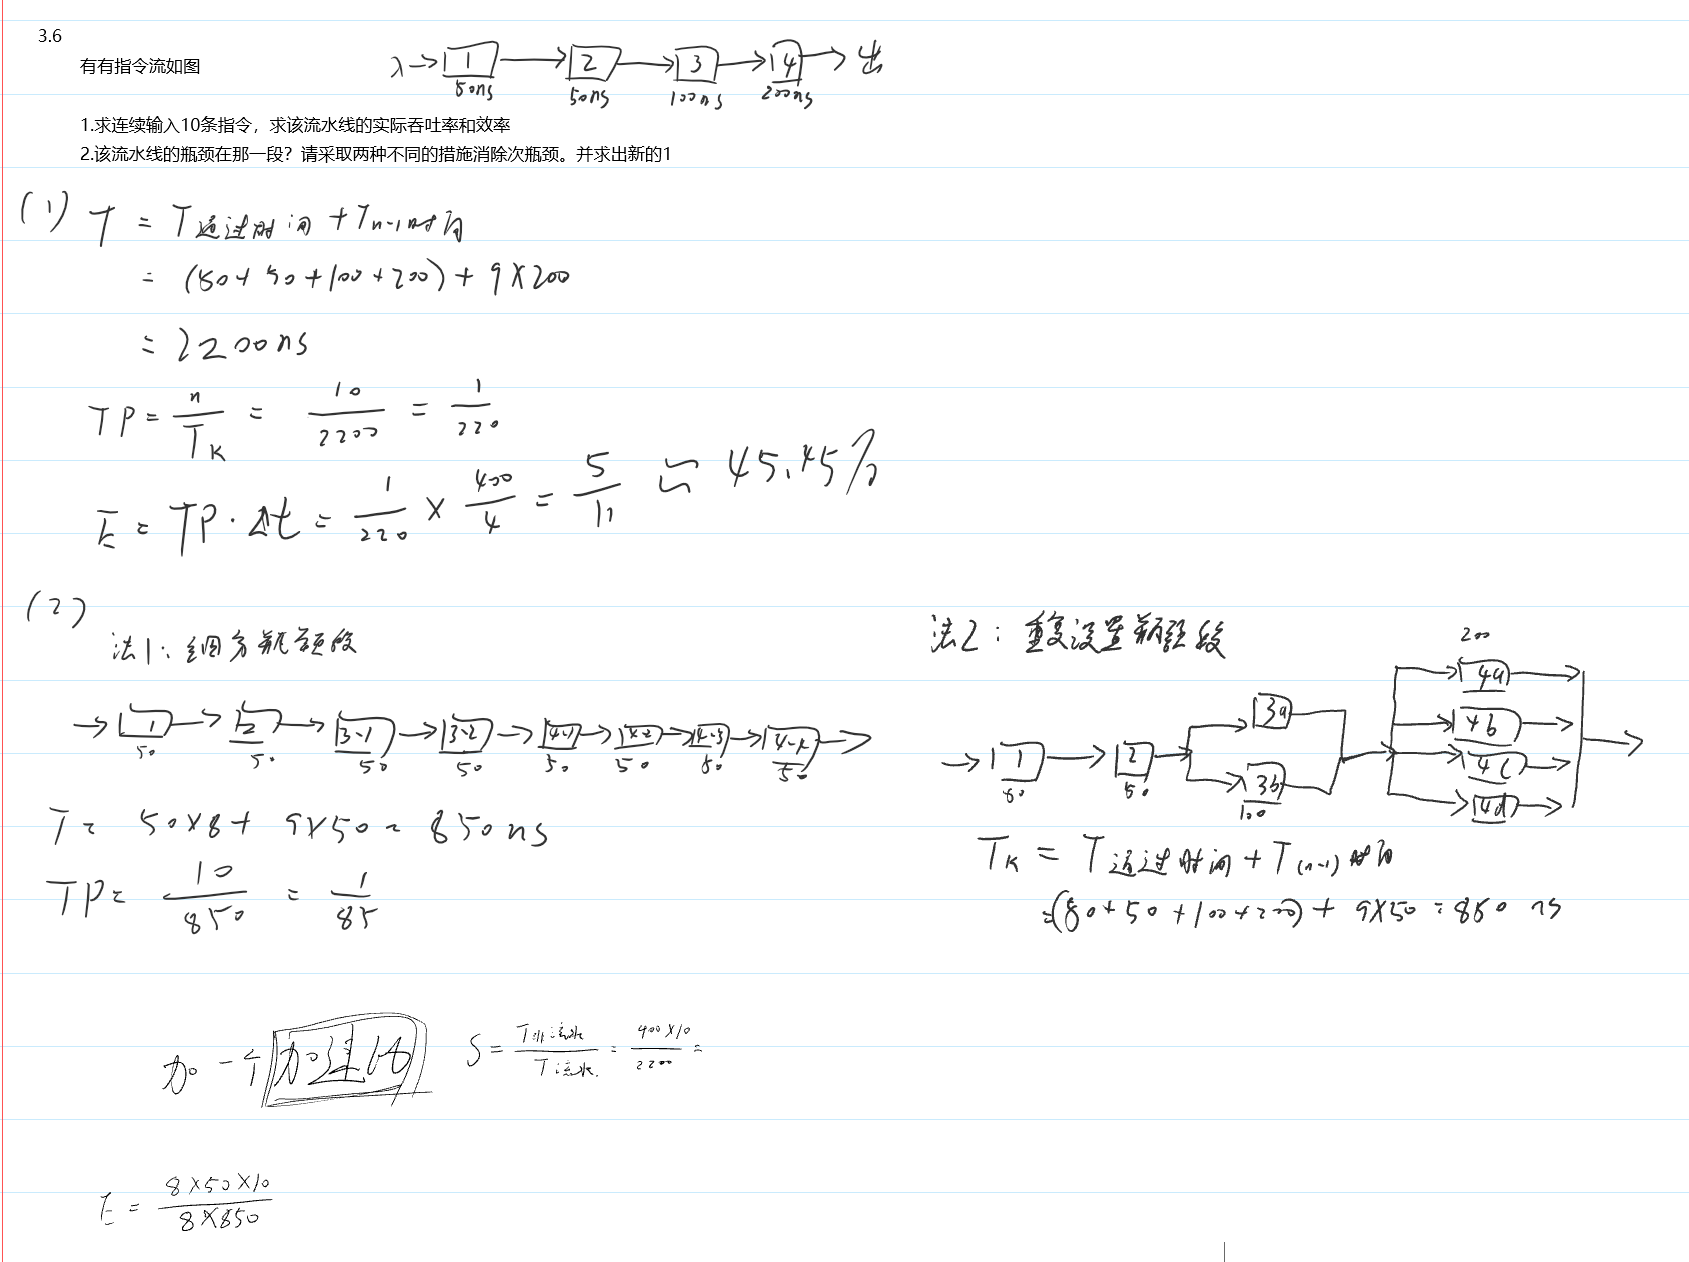 3.6
有有指令流如图
入→ 1 → 2 → 3 → 4 → 出
50ns 50ns 100ns 200ns
1.求连续输入10条指令，求该流水线的实际吞吐率和效率
2.该流水线的瓶颈在那一段？请采取两种不同的措施消除次瓶颈。并求出新的1
(1) T = T通过时间 + Tn-1时间
= (50+50+100+200) + 9×200
= 2200ns
TP = n/TK = 10/2200 = 1/220
E = TP·Δt = 1/220 × 400/4 = 5/11 ≈ 45.45%
(2)
法1：细分瓶颈段
1 2 3-1 3-2 4-1 4-2 4-3 4-4
50 50 50 50 50 50 50 50
T = 50×8 + 9×50 = 850ns
TP = 10/850 = 1/85
法2：重复设置瓶颈段
200
4a
3a
4b
1 2
4c
50 50
3b
100
4d
TK = T通过时间 + T(n-1)时间
=(50+50+100+200) + 9×50 = 850 ns
加一个 加速比
S = T非流水/T流水 = 400×10/2200 =
E = 8×50×10/8×850